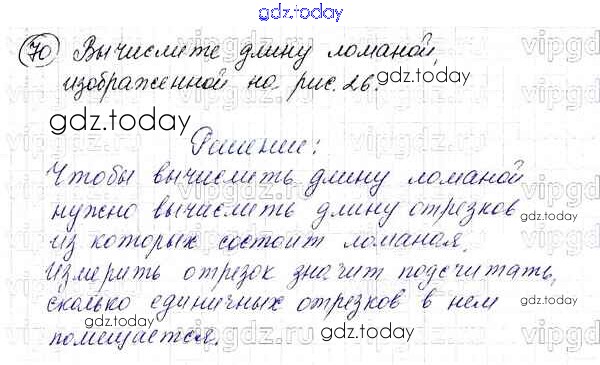 gdz.today
70 Вычислите длину ломаной,
изображенной на рис. 26.
gdz.today
gdz.today
Решение:
Чтобы вычислить длину ломаной
нужно вычислить длину отрезков
gdz.today
из которых состоит ломаная.
Измерить отрезок значит подсчитать,
сколько единичных отрезков в нем
gdz.today
gdz.today
помещается.
gdz.today